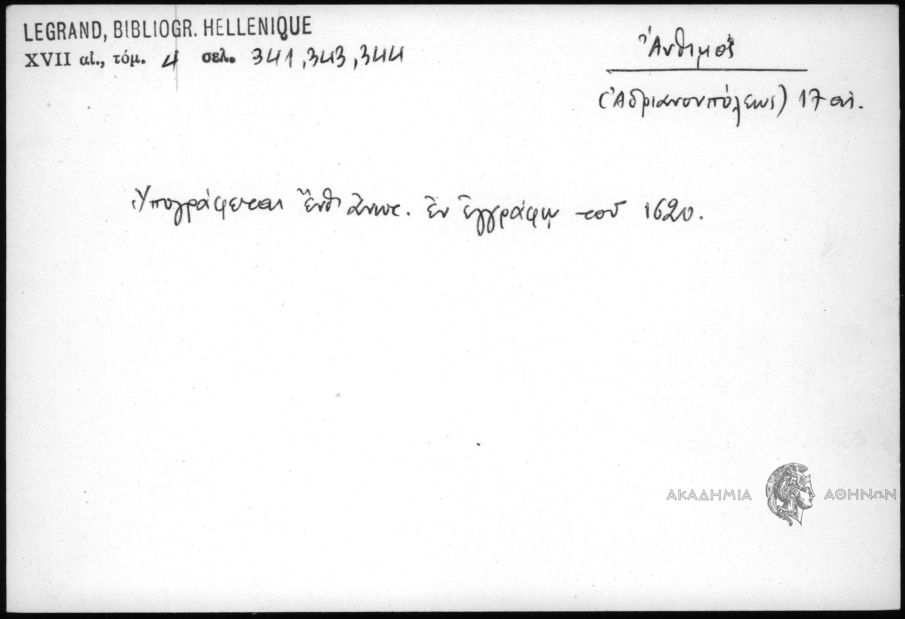 LEGRAND, BIBLIOGR. HELLENIQUE
XVII αἰ., τόμ. 4 σελ. 341, 343, 344
Ἄνθιμος
(Ἀδριανουπόλεως) 17 αἰ.
Ὑπογράφεται ἔνθ ἀνωτ. ἐν ἐγγράφῳ τοῦ 1620.
ΑΚΑΔΗΜΙΑ ΑΘΗΝΩΝ